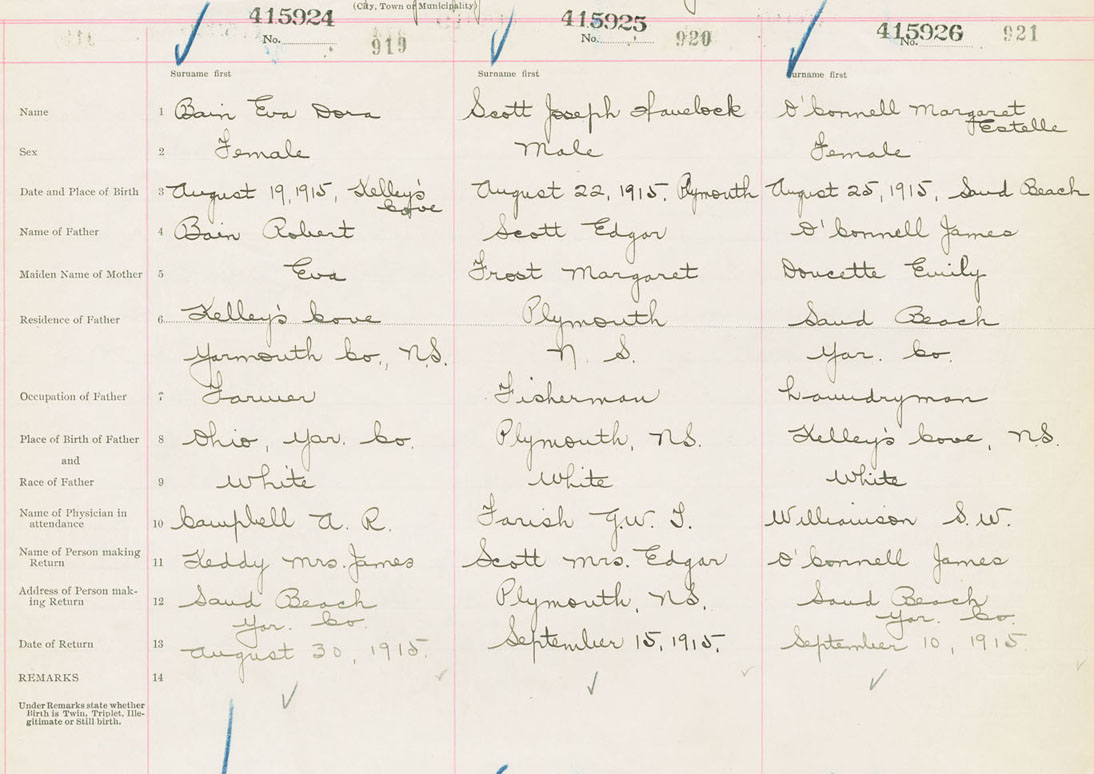 (City, Town or Municipality)
415924 415925 415926
No. 919 No. 920 No. 921
Surname first Surname first Surname first
Name 1 Bain Eva Dora Scott Joseph Havelock O'Connell Margaret
Estelle
Sex 2 Female Male Female
Date and Place of Birth 3 August 19, 1915, Kelley's August 22, 1915. Plymouth August 25, 1915, Sand Beach
Cove
Name of Father 4 Bain Robert Scott Edgar O'Connell James
Maiden Name of Mother 5 Eva Frost Margaret Doucette Emily
Residence of Father 6 Kelley's Cove Plymouth Sand Beach
Yarmouth Co., N.S. N. S. Yar. Co.
Occupation of Father 7 Farmer Fisherman Laundryman
Place of Birth of Father 8 Ohio, Yar. Co. Plymouth, N.S. Kelley's Cove, N.S.
and
Race of Father 9 White White White
Name of Physician in
attendance 10 Campbell A. R. Farish G.W. T. Williamson S.W.
Name of Person making
Return 11 Keddy Mrs. James Scott Mrs. Edgar O'Connell James
Address of Person mak-
ing Return 12 Sand Beach Plymouth, N.S. Sand Beach
Yar. Co. Yar. Co.
Date of Return 13 August 30, 1915. September 15, 1915. September 10, 1915.
REMARKS 14
Under Remarks state whether
Birth is Twin, Triplet, Ille-
gitimate or Still birth.